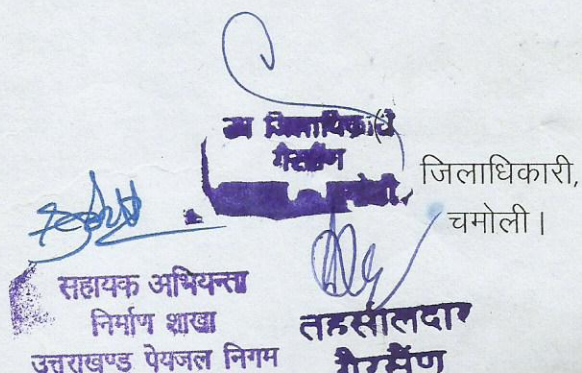 उप जिलाधिकारी
गैरसैंण
चमोली.
जिलाधिकारी,
चमोली।
सहायक अभियन्ता
निर्माण शाखा
उत्तराखण्ड पेयजल निगम
तहसीलदार
गैरसैंण